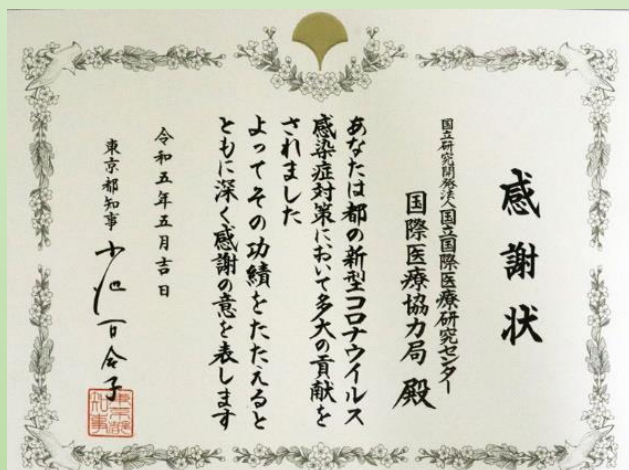 感謝状
国立研究開発法人国立国際医療研究センター
国際医療協力局 殿
あなたは都の新型コロナウイルス
感染症対策において多大の貢献を
されました
よってその功績をたたえると
ともに深く感謝の意を表します
令和五年五月吉日
東京都知事 小池百合子
東京都知事